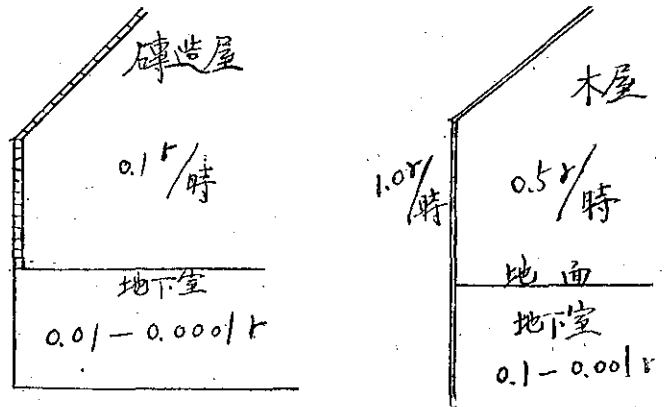 磚造屋
0.1 r/時
地下室
0.01-0.0001 r
木屋
1.0 r/時
0.5 r/時
地面
地下室
0.1-0.001 r